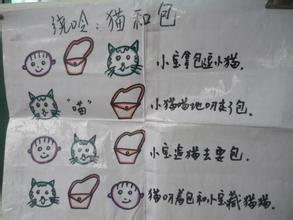 绕口令:猫和包
小宝拿包逗小猫.
"喵" 小猫喵地叼走了包.
小宝追猫去要包.
猫叼着包和小宝藏猫猫.